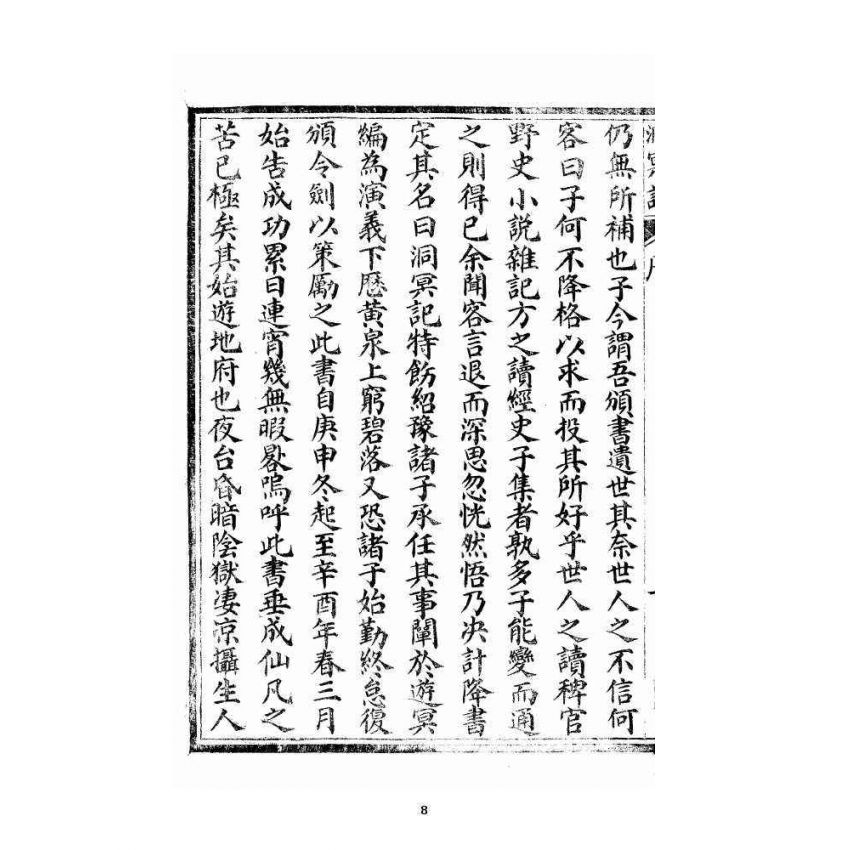 仍無所補也子今謂吾頒書遺世其奈世人之不信何
容曰子何不降格以求而投其所好乎世人之讀稗官
野史小説雜記方之讀經史子集者孰多子能變而通
之則得已余聞容言退而深思忽恍然悟乃决計降書
定其名曰洞冥記特飭紹豫諸子承任其事闡於遊冥
編為演義下歷黄泉上窮碧落又恐諸子始勤終怠復
頒令劍以策勵之此書自庚申冬起至辛酉年春三月
始告成功累日連宵幾無暇晷嗚呼此書垂成仙凡之
苦已極矣其始遊地府也夜台昏暗陰獄凄凉攝生人
8